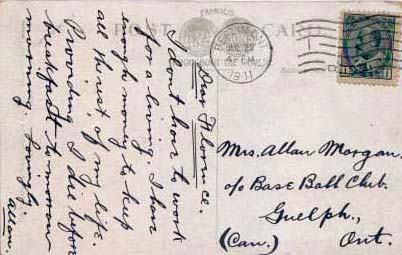 FAMOUS
POST CARD
BERLIN, ONT.
JUL 22
PM
1911
Dear Florence.
I dont hove to work
for a living. I have
enough money to keep
all the rest of my life.
Providing I die before
breakfast tomorrow
morning. Lovingly.
Allan.
Mrs. Allan Morgan.
c/o Base Ball Club.
Guelph,
(Can.) Ont.